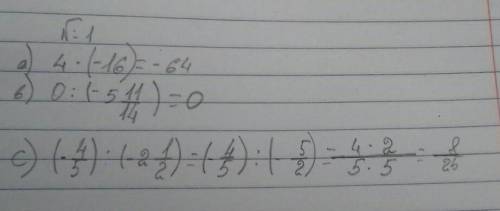 №1
а) 4 · (-16) = -64
в) 0 : (-5 11/14) = 0
с) (-4/5) : (-2 1/2) = (-4/5) : (-5/2) = 4·2/5·5 = 8/25